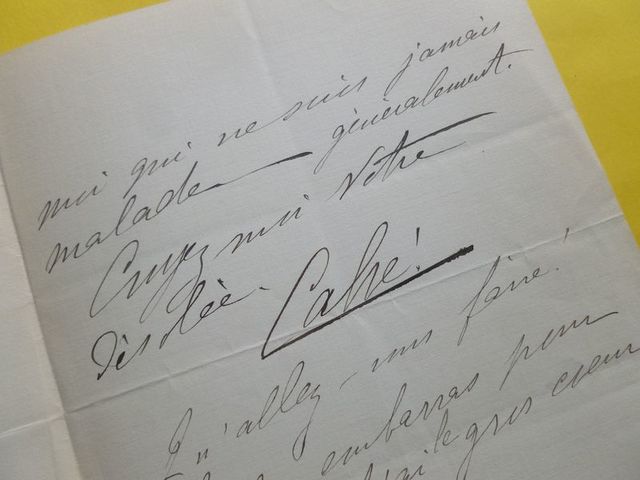 moi qui ne suis jamais
malade généralement.
Croyez moi Votre
désolée. Calvé!
Qu'allez-vous faire!
embarras pour
j'ai le gros coeur